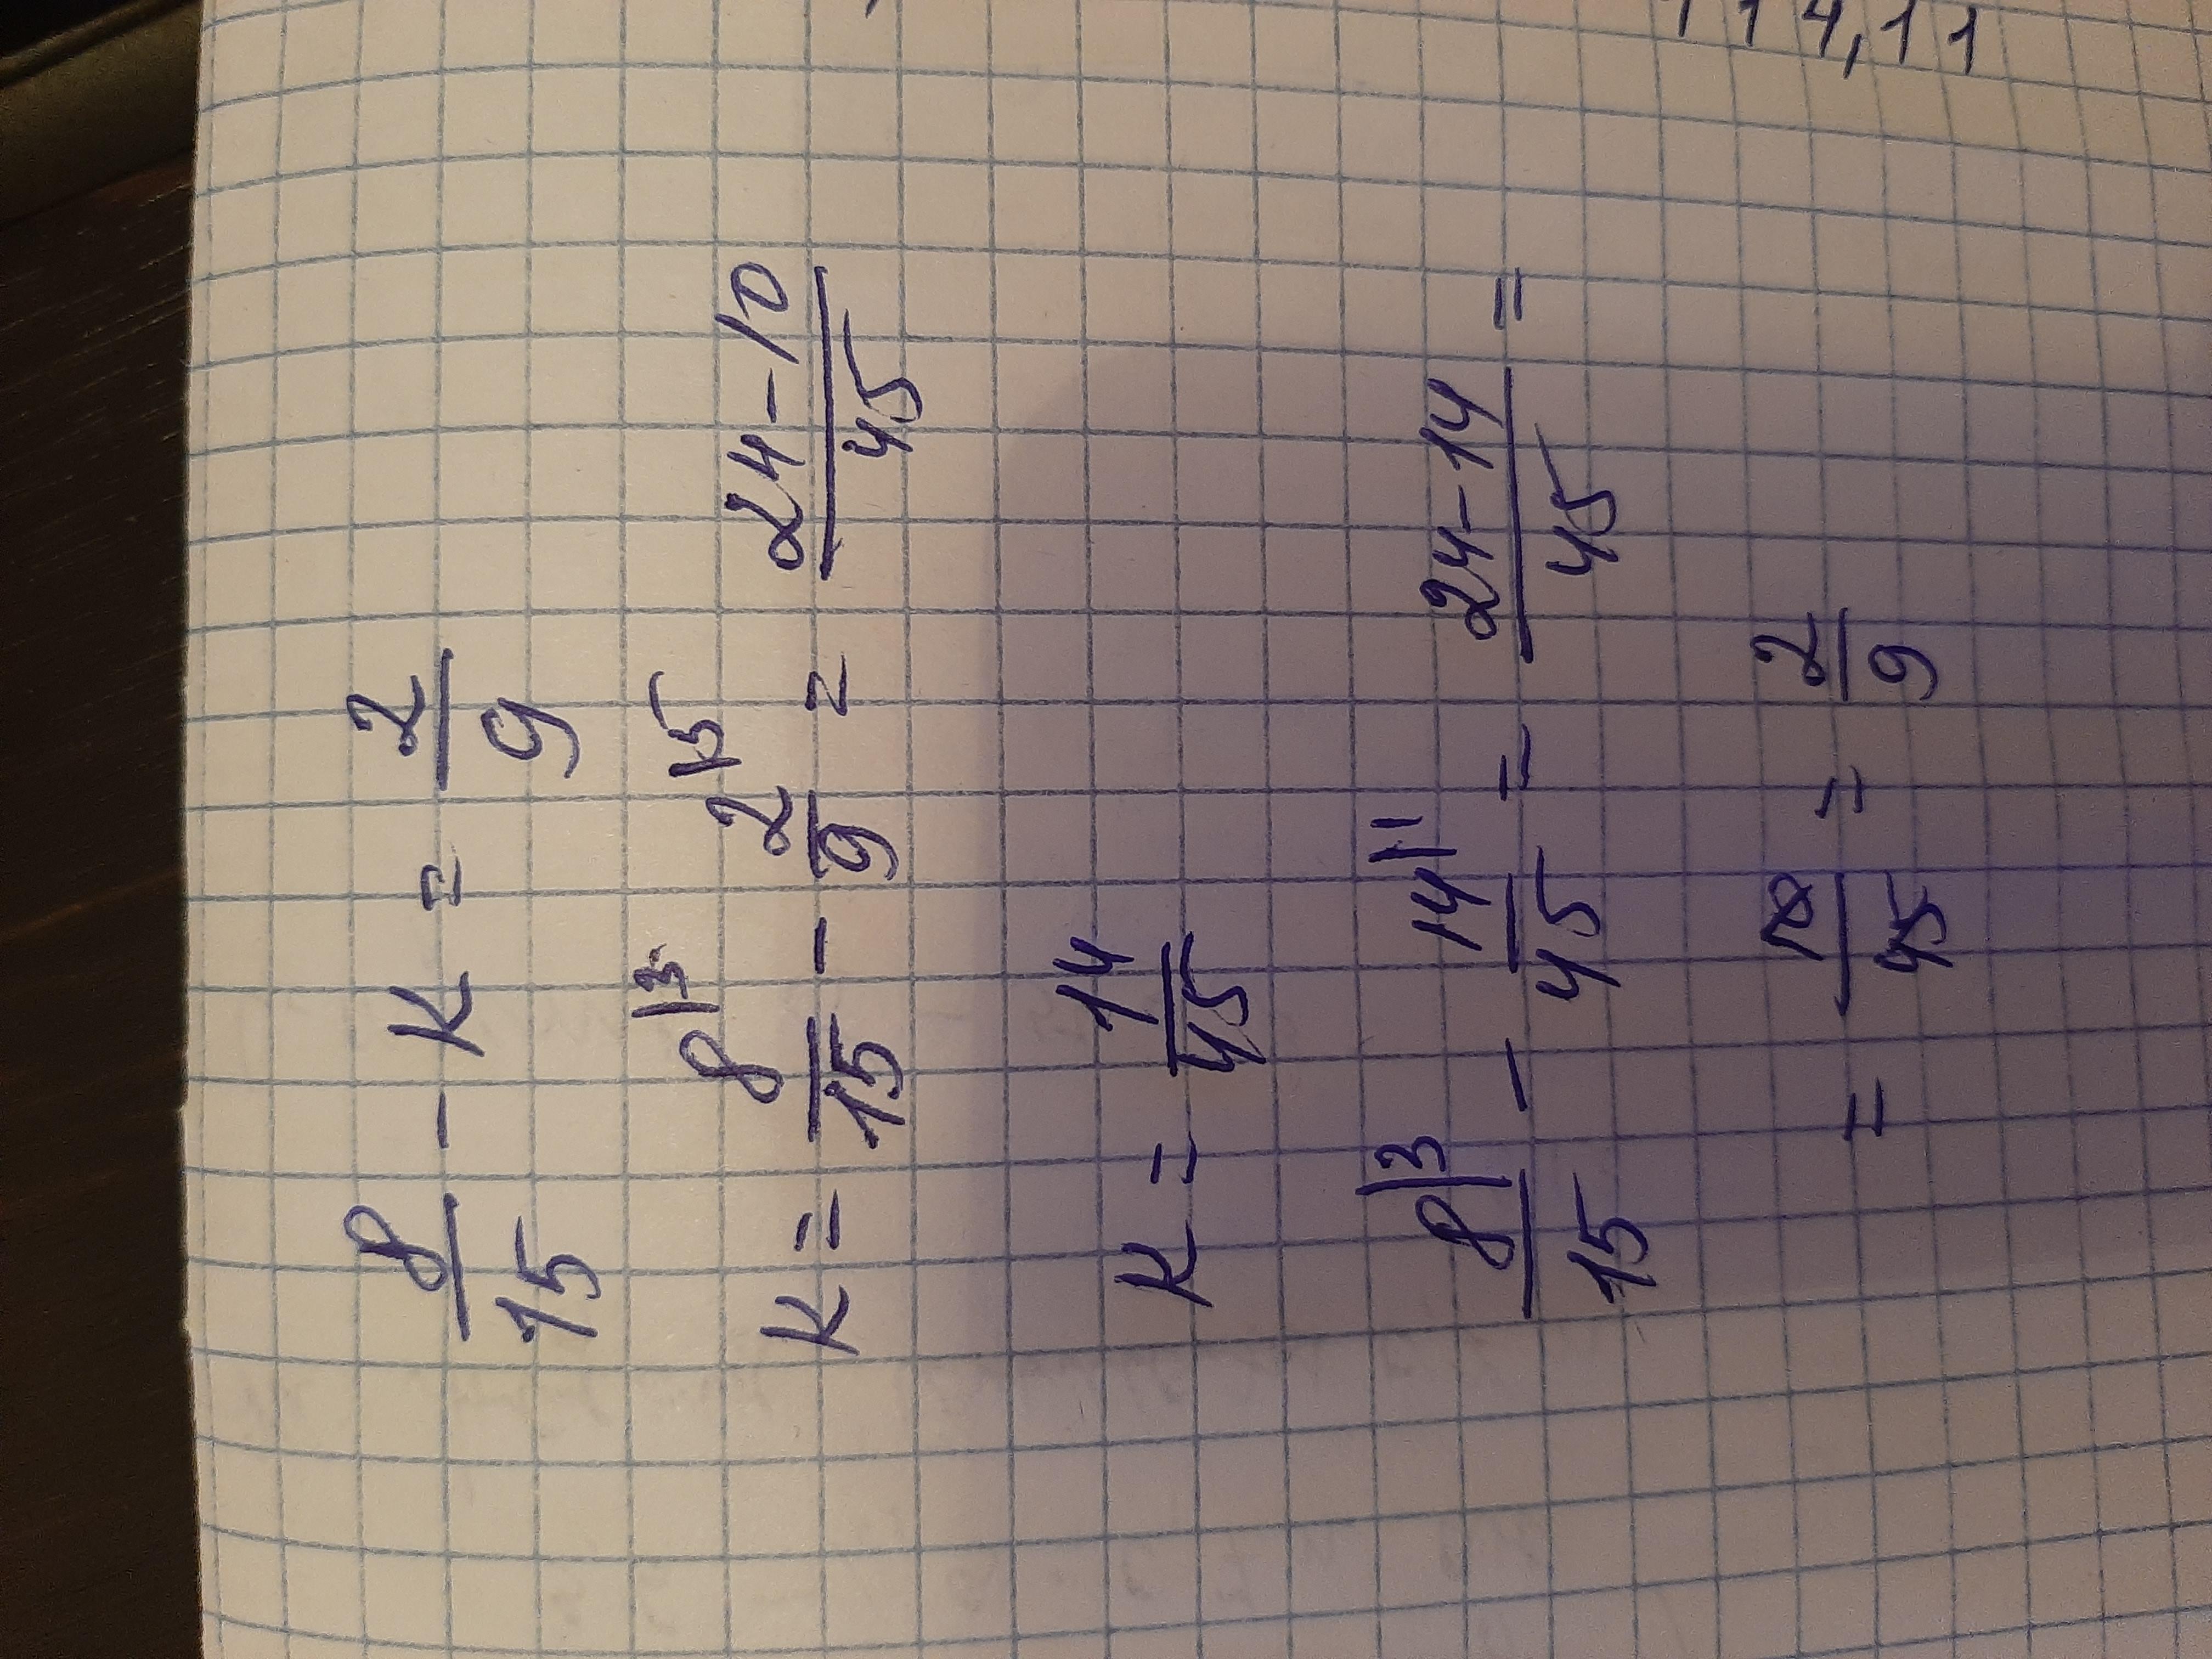 8/15 - к = 2/9
к = 8|3/15 - 2|5/9 = 24-10/45
к = 14/45
8|3/15 - 14|1/45 = 24-14/45 =
= 10/45 = 2/9
114,11